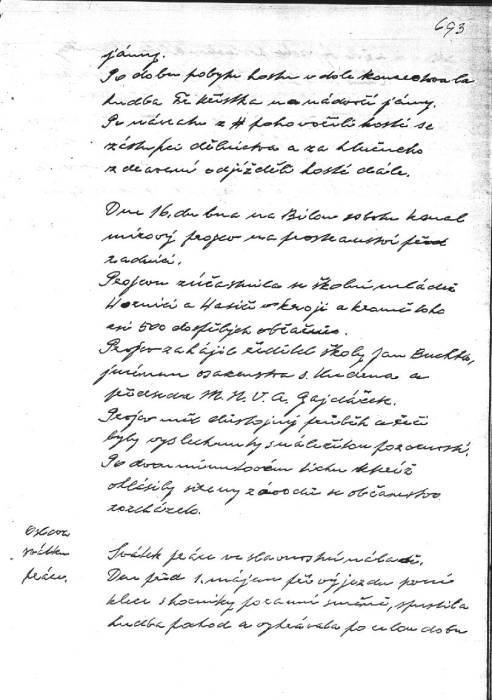 693
jámy.
Po dobu pobytu hostů v dole koncertovala
hudba Fr. Křístka na nádvoří jámy.
Po návratu z # pohovořili hosté se
zástupci dělnictva a za hlučného
zdravení odjížděli hosté dále.
Dne 16. dubna na Bílou sobotu konal
mírový projev na prostranství před
radnicí.
Projevu zúčastnila se školní mládež
Horníci a Hasiči v kroji a kromě toho
asi 500 dospělých občanů.
Projev zahájil ředitel školy Jan Buchta,
jménem osazenstva s. Kudena a
předseda M.N.V. A. Gajdáček.
Projev měl důstojný průběh a řeči
byly vyslechnuty s náležitou pozorností.
Po dvouminutovém tichu, které
ohlásily sireny závodů se občanstvo
rozcházelo.
Oslava
svátku
práce.
Svátek práce ve slavnostní náladě.
Den před 1. májem při výjezdu první
klece s horníky po ranní směně, spustila
hudba pochod a vyhrávala po celou dobu